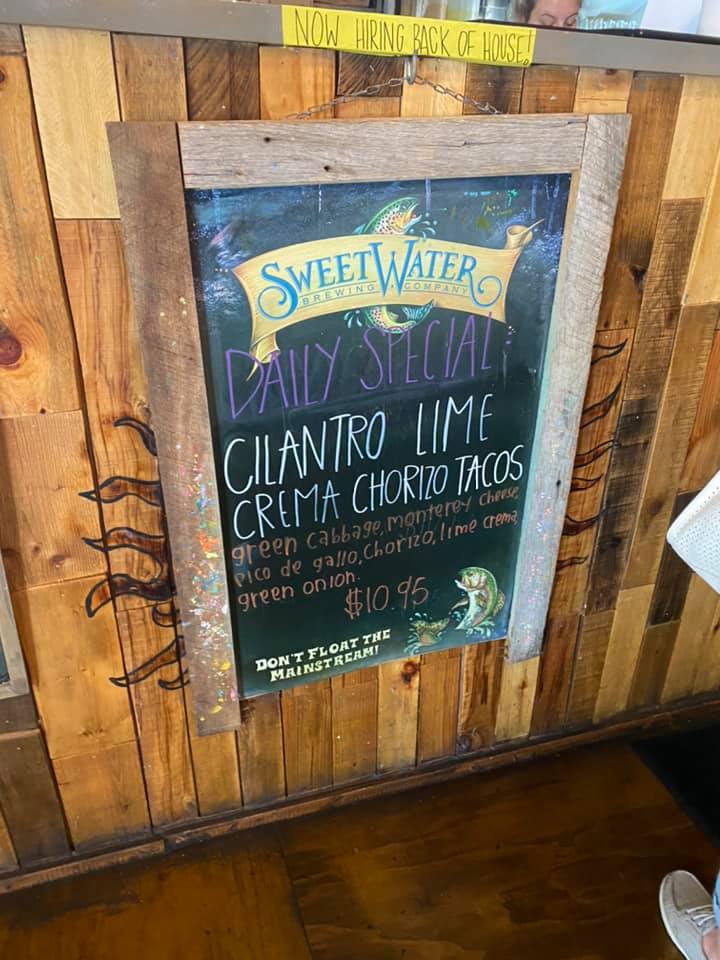 NOW HIRING BACK OF HOUSE!
SWEETWATER
BREWING COMPANY
DAILY SPECIAL:
CILANTRO LIME
CREMA CHORIZO TACOS
green cabbage, monterey cheese,
Pico de gallo, Chorizo, lime crema,
green onion.
$10.95
DON'T FLOAT THE
MAINSTREAM!